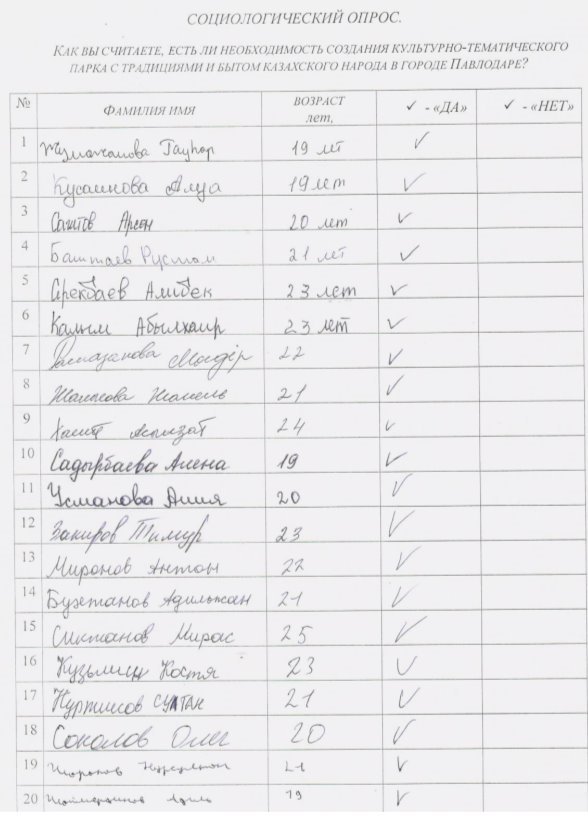 СОЦИОЛОГИЧЕСКИЙ ОПРОС.
КАК ВЫ СЧИТАЕТЕ, ЕСТЬ ЛИ НЕОБХОДИМОСТЬ СОЗДАНИЯ КУЛЬТУРНО-ТЕМАТИЧЕСКОГО
ПАРКА С ТРАДИЦИЯМИ И БЫТОМ КАЗАХСКОГО НАРОДА В ГОРОДЕ ПАВЛОДАРЕ?
№ ФАМИЛИЯ ИМЯ ВОЗРАСТ лет, ✓ - «ДА» ✓ - «НЕТ»
1 Гаухар 19 лет ✓
2 Кусаинова Алуа 19 лет ✓
3 Арсен 20 лет ✓
4 Баштаев Рустам 21 лет ✓
5 Серекбаев Алибек 23 лет ✓
6 Калым Абылхаир 23 лет ✓
7 Рамазанова Молдір 22 ✓
8 21 ✓
9 24 ✓
10 Садырбаева Алена 19 ✓
11 Усманова Алия 20 ✓
12 Закиров Тимур 23 ✓
13 Миронов Антон 22 ✓
14 Адильжан 21 ✓
15 Мирас 25 ✓
16 Кузьмин Костя 23 ✓
17 СУЛТАН 21 ✓
18 Соколов Олег 20 ✓
19 21 ✓
20 19 ✓